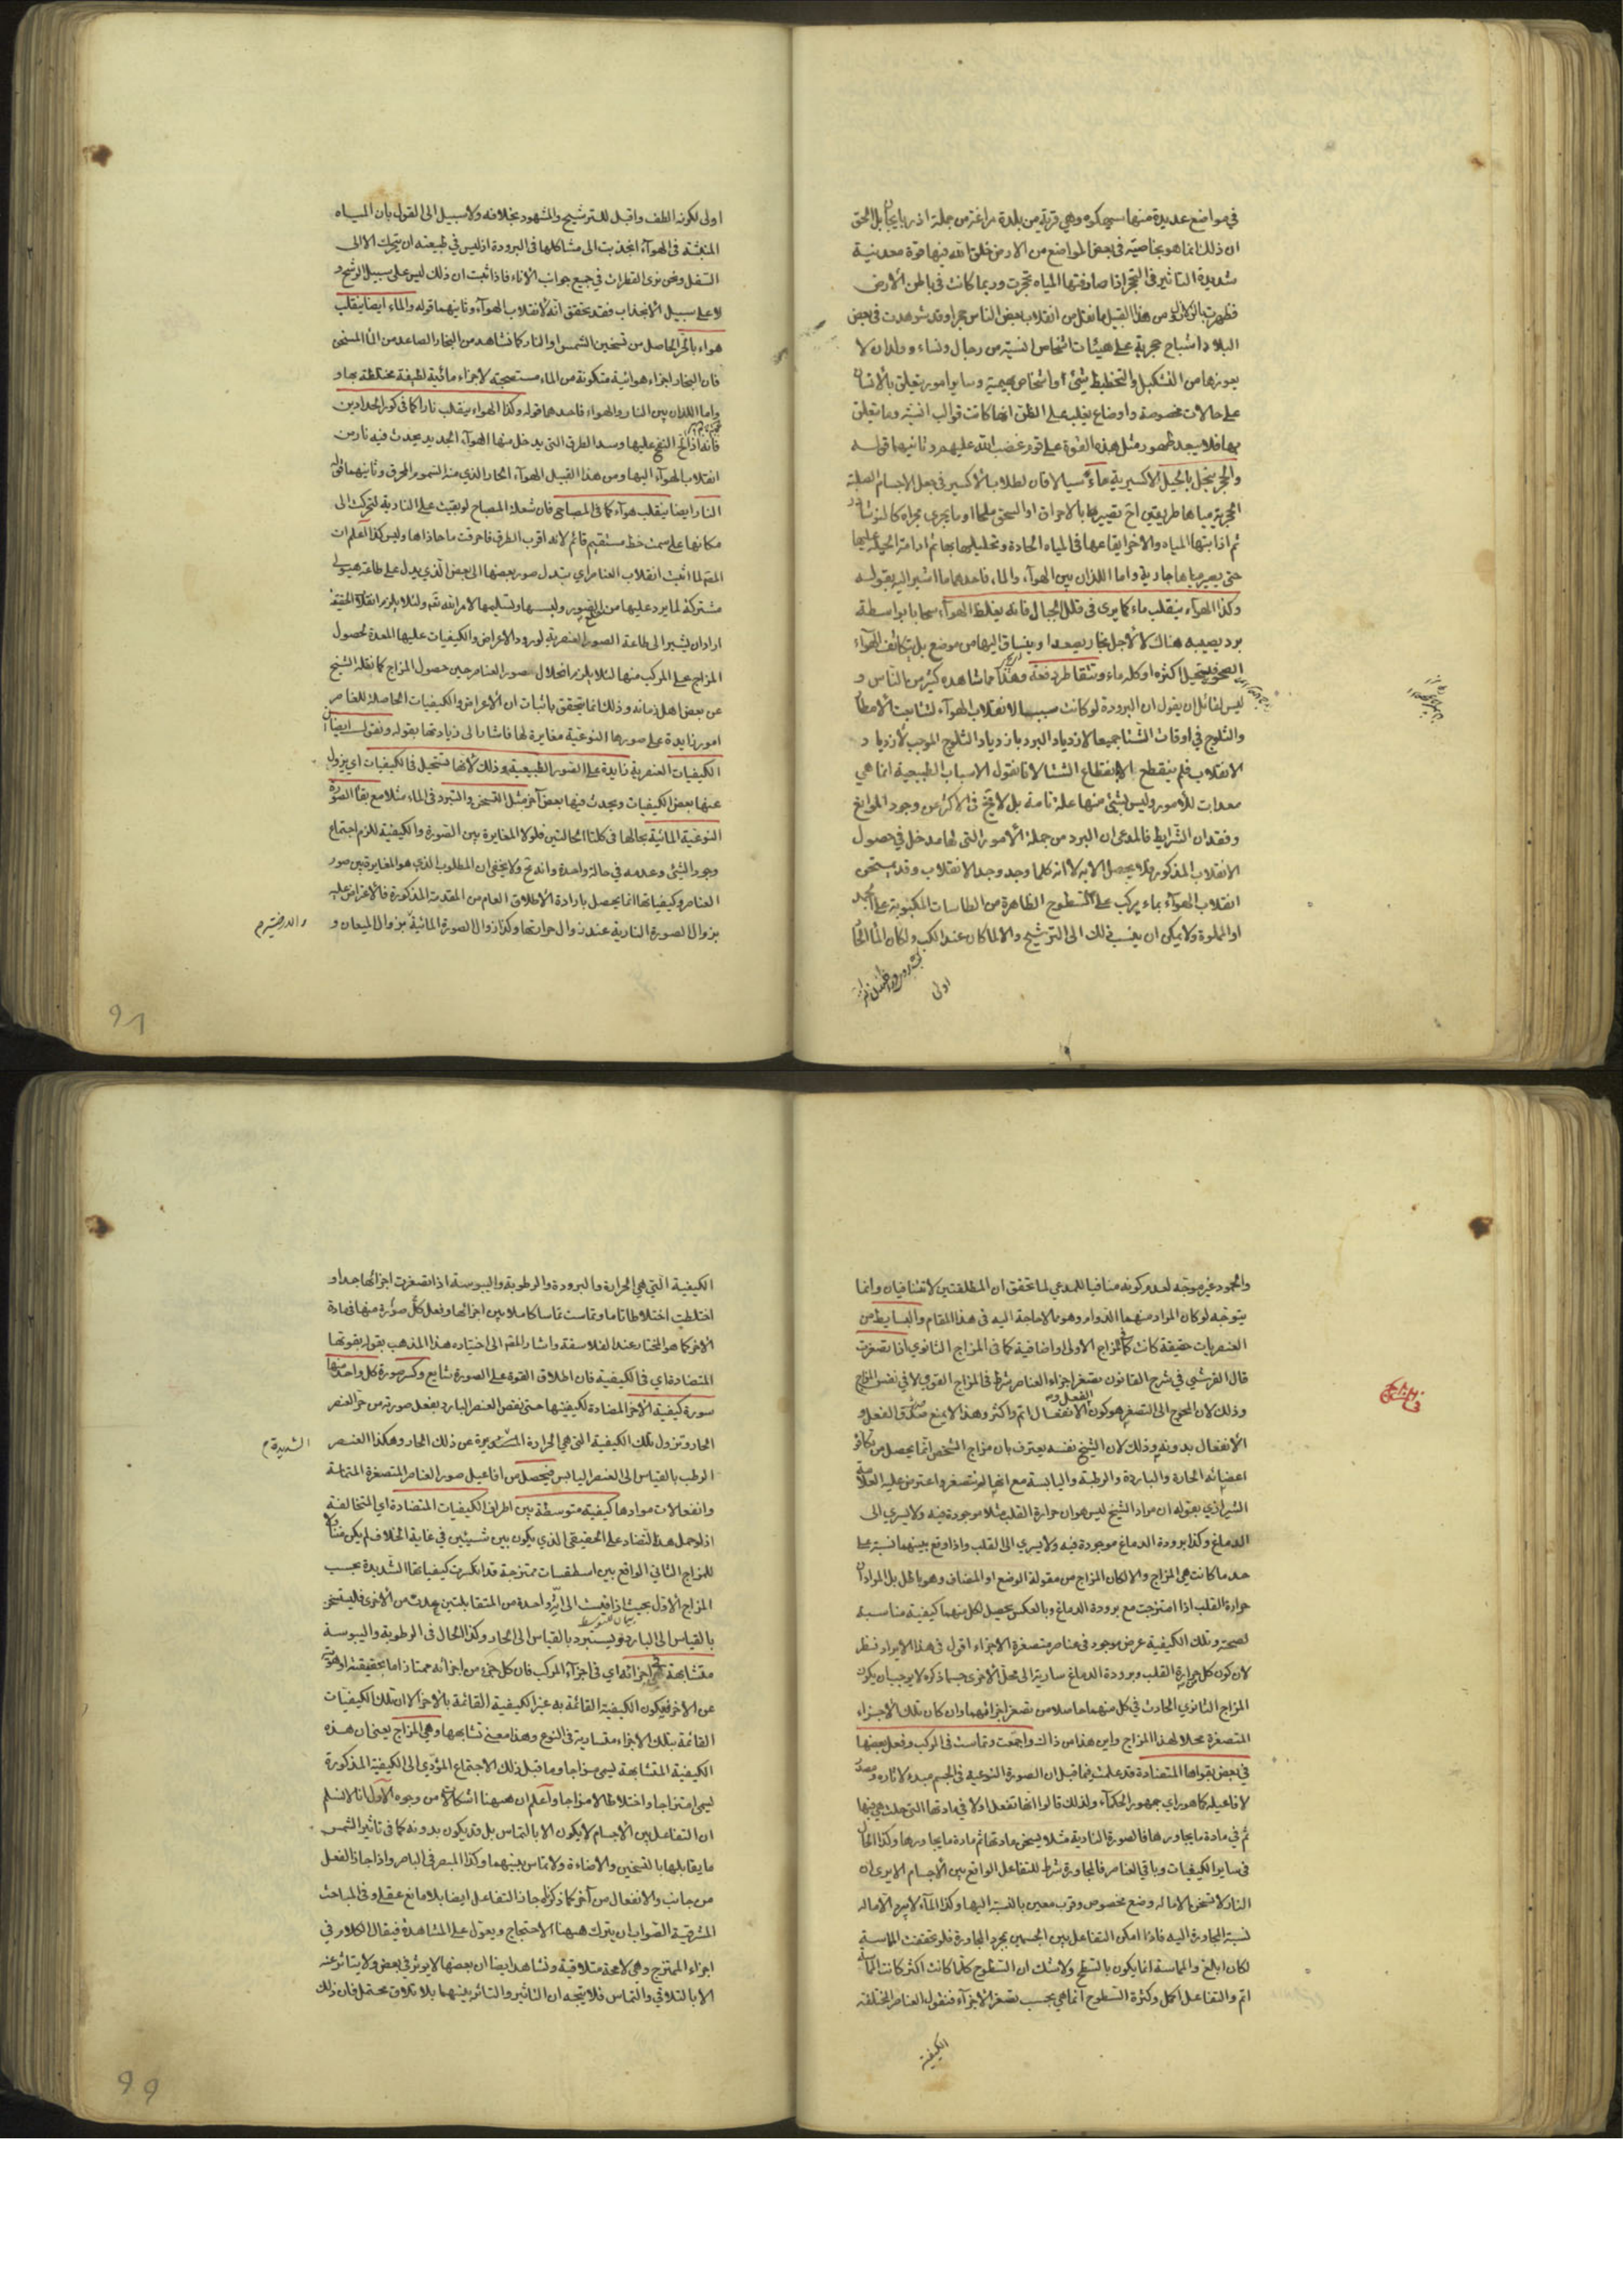 في مواضع عديدة منها سيه كوه وهي قرية من بلدة مراغة من جملة اذربايجان بل الحق
ان ذلك انما هو بخاصية في بعض المواضع من الارض خلق الله فيها قوة معدنية
شديدة التاثير في التحجر اذا صادفتها المياه تحجرت وربما كانت في باطن الأرض
فظهرت بالزلازل ومن هذا القبيل ما نقل من انقلاب بعض الناس حجرا وقد شوهدت في بعض
البلاد اشباح حجرية على هيئات اشخاص انسية من رجال ونساء وولدان لا
يعوزها من التشكيل والتخطيط شيء أو اشخاص بهيمية وساير امور يتعلق بالانسان
على حالات مخصوصة واوضاع يغلب على الظن انها كانت قوالب انسية وما يتعلق
بها فلا يبعد ظهور مثل هذه القوة على قوم غضب الله عليهم وثانيهما قوله
والحجر ينحل بالحيل الاكسيرية ماء سيالا فان لطلاب الأكسير في جعل الاجسام الصلبة
الحجرية مياها طريقين احدهما تصييرها بالاحراق او السحق ملحا او ما يجري مجراه كالنوشادر
ثم اذابتها بالمياه والاخر ايقاعها في المياه الحادة وتحليلها بها ثم ادامة الحيلة عليها
حتى يصير مياها جارية واما اللذان بين الهوآء والماء فاحدهما ما اشير اليه بقوله
وكذا الهوآء ينقلب ماء كما يرى في قلل الجبال فانه يغلظ الهوآء سحابا بواسطة
برد يصيبه هناك لا لأجل بخار يصعد او ينساق اليها من موضع بل يتكاثف الهوآء
الصحو ويستحيل اكثره او كله ماء ويتقاطر دفعة وهذا مما شاهده كثير من الناس و
ليس لقائل ان يقول ان البرودة لو كانت سببا لانقلاب الهوآء لتتابعت الأمطار
والثلوج في اوقات الشتا جميعا لازدياد البرد بازدياد الثلوج الموجب لأزدياد
الانقلاب فلم ينقطع الا بانقطاع الشتا لانا نقول الاسباب الطبيعية انما هي
معدات للأمور وليس شيء منها علة تامة بل لا يخ في الاكثر عن وجود الموانع
وفقدان الشرايط فالمدعى ان البرد من جملة الأمور التي لها مدخل في حصول
الانقلاب المذكور ولا يحصل الا به لا انه كلما وجد وجد الانقلاب وقد يستحق
انقلاب الهوآء بماء يركب على السطوح الظاهرة من الطاسات المكبوبة على الجمد
او المملوة ولا يمكن ان ينسب ذلك الى الترشيح والا لما كان عند الكب ولكان الماء الحار
اولى
اولى لكونه الطف واقبل للترشيح والمشهود بخلافه ولا سبيل الى القول بأن المياه
المنبثة في الهوآء انجذبت الى مشاكلها في البرودة اذ ليس في طبيعته ان يتحرك الا الى
السفل ونحن نرى القطرات في جميع جوانب الاناء فاذا ثبت ان ذلك ليس على سبيل الرشح و
لا على سبيل الأنجذاب فقد تحقق انه لانقلاب الهوآء وثانيهما قوله والماء ايضا ينقلب
هواء بالحر الحاصل من تسخين الشمس او النار كما نشاهد من البخار الصاعد من الماء المسخن
فان البخار اجزاء هوائية متكونة من الماء مستصحبة لاجزاء مائية لطيفة مختلطة بها و
واما اللذان بين النار والهواء فاحدهما قوله وكذا الهواء ينقلب نارا كما في كور الحدادين
فانه اذا الح النفخ عليها وسد الطرق التي يدخل منها الهوآء الجديد يحدث فيه نار من
انقلاب الهوآء اليها ومن هذا القبيل الهوآء الحار الذي منه السموم المحرق وثانيهما قوله
النار ايضا ينقلب هوآء كما في المصباح فان شعلة المصباح لو بقيت على النارية لتحركت الى
مكانها على سمت خط مستقيم قائم لانه اقرب الطرق فاحرقت ما حاذاها وليس كذا اعلم ان
المصـ لما اثبت انقلاب العناصر اي تبدل صور بعضها الى بعض الذي يدل على طاعة هيولى
مشتركة لما يرد عليها من الصور ولبسها وتسليمها لامر الله تعـ ولئلا يلزم انقلاب الحقيقة
اراد ان يشير الى طاعة الصور العنصرية لورود الاعراض والكيفيات عليها المعدة لحصول
المزاج على المركب منها لئلا يلزم انحلال صور العناصر حين حصول المزاج كما نقله الشيخ
عن بعض اهل زمانه وذلك انما يتحقق باثبات ان الأعراض والكيفيات الحاصلة للعناصر
امور زايدة على صورها النوعية مغايرة لها فاشار الى زيادتها بقوله ونقول ايضا
الكيفيات العنصرية زايدة على الصور الطبيعية وذلك لأنها تستحيل في الكيفيات اي يزول
عنها بعض الكيفيات ويحدث فيها بعض آخر مثل التسخن والتبرد في الماء مثلا مع بقاء الصورة
النوعية المائية بحالها في كلتا الحالتين فلولا المغايرة بين الصورة والكيفية للزم اجتماع
وجود الشئ وعدمه في حالة واحدة وانه مح ولا يخفى ان المطلوب الذي هو المغايرة بين صور
العناصر وكيفياتها انما يحصل بارادة الأطلاق العام من المقدمة المذكورة فالاعتراض عليه
بزوال الصورة النارية عند زوال حرارتها وكذا زوال الصورة المائية بزوال الميعان و
91
والجمود غير موجه لعدم كونه منافيا للمدعى لما تحقق ان المطلقتين لا تتنافيان وانما
يتوجه لو كان المراد منهما الدوام وهو مما لا حاجة اليه في هذا المقام والبسايط من
العنصريات حقيقة كانت كما في المزاج الاولى او اضافية كما في المزاج الثانوي اذا تصغرت
قال القرشي في شرح القانون تصغر اجزاء العناصر شرط في المزاج القوي لا في نفس المزاج
وذلك لان المحوج الى التصغر هو كون الفعل والانفعال اتم واكثر وهذا لا يمنع صدق الفعل و
الأنفعال بدونه وذلك لان الشيخ نفسه يعترف بان مزاج الشخص انما يحصل من تكافؤ
اعضائه الحارة والباردة والرطبة واليابسة مع انها لم تتصغر واعترض عليه العلامة
الشيرازي بقوله ان مراد الشيخ ليس هو ان حرارة القلب مثلا موجودة فيه ولا يسري الى
الدماغ وكذا برودة الدماغ موجودة فيه ولا يسري الى القلب واذا وقع بينهما نسبة على
حد ما كانت هي المزاج والا لكان المزاج من مقولة الوضع او المضاف وهو باطل بل المراد ان
حرارة القلب اذا امتزجت مع برودة الدماغ وبالعكس يحصل لكل منهما كيفية مناسبة
لصحته وتلك الكيفية عرض موجود في عناصر متصغرة الاجزاء اقول في هذا الايراد نظر
لان كون كل حرارة القلب وبرودة الدماغ سارية الى محل الأخرى حسبما ذكره لا يوجب ان يكون
المزاج الثانوي الحادث في كل منهما حاصلا من تصغر اجزائهما وان كان تلك الأجزاء
المتصغرة محلا لهذا المزاج واين هذا من ذاك واجتمعت وتماست في المركب وفعل بعضها
في بعض بقواها المتضادة قد علمت فيما قبل ان الصورة النوعية في الجسم مبدء لاثاره ومصدر
لافاعيله كما هو راي جمهور الحكمآء ولذلك قالوا انها تفعل اولا في مادتها التي حلت هي فيها
ثم في مادة ما يجاورها فالصورة النارية مثلا يسخن مادتها ثم مادة ما يجاورها وكذا الحال
في ساير الكيفيات وباقي العناصر فالمجاورة شرط للتفاعل الواقع بين الأجسام الا يرى ان
النار لا تسخن الا ما له وضع مخصوص وقرب معين بالنسبة اليها وكذا الماء لا يبرد الا ما له
نسبة المجاورة اليه فاذا امكن التفاعل بين الجسمين بمجرد المجاورة فلو تحققت المماسة
لكان ابلغ والمماسة انما يكون بالسطح ولا شك ان السطوح كلما كانت اكثر كانت المماسة
اتم والتفاعل اكمل وكثرة السطوح انما هي بحسب تصغر الاجزآء فنقول العناصر المختلفة
الكيفية
الكيفية التي هي الحرارة والبرودة والرطوبة واليبوسة اذا تصغرت اجزائها جدا و
اختلطت اختلاطا تاما وتماست تماسا كاملا بين اجزائها وفعل كل صورة منها في مادة
الأخر كما هو المختار عند الفلاسفة واشار المصـ الى اختياره هذا المذهب بقوله بقوتها
المتضادة اي في الكيفية فان اطلاق القوة على الصورة شايع وكسر صورة كل واحد منها
سورة كيفية الأخر المضادة لكيفيتها حتى نقص العنصر البارد بفعل صورته من حر العنصر
الحار وتزول تلك الكيفية التي هي الحرارة عن ذلك الحار وهكذا العنصر
الشديدة
الرطب بالقياس الى العنصر اليابس فيحصل من افاعيل صور العناصر المتصغرة المتماسة
وانفعالات موادها كيفية متوسطة بين اطراف الكيفيات المتضادة اي المتخالفة
اذ لو حمل هذا التضاد على الحقيقي الذي يكون بين شيئين في غاية الخلاف لم يكن متناولا
للمزاج الثاني الواقع بين اسطقسات ممتزجة قد انكسرت كيفياتها الشديدة بحسب
المزاج الأول بحيث اذا قيست الى اية واحدة من المتقابلتين عدت من الأخرى فليتسخن
بيان للتوسط
بالقياس الى البارد ويستبرد بالقياس الى الحار وكذا الحال في الرطوبة واليبوسة
متشابهة في اجزائه اي في اجزآء المركب فان كل جزء من اجزائه ممتاز اما بحقيقته او هويته
عن الأخر فيكون الكيفية القائمة به غير الكيفية القائمة بالأخر الا ان تلك الكيفيات
القائمة بتلك الأجزاء متساوية في النوع وهذا معنى تشابهها وهي المزاج يعني ان هذه
الكيفية المتشابهة يسمى مزاجا وما قبل ذلك الاجتماع المؤدي الى الكيفية المذكورة
يسمى امتزاجا واختلاطا لا مزاجا واعلم ان ههنا اشكالات من وجوه الأول انا لا نسلم
ان التفاعل بين الأجسام لا يكون الا بالتماس بل قد يكون بدونه كما في تاثير الشمس
ما يقابلها بالتسخين والاضاءة ولا تماس بينهما وكذا المبصر في الباصر واذا جاز الفعل
من جانب والانفعال من آخر كما ذكر جاز التفاعل ايضا بلا مانع عقلي وفي المباحث
المشرقية الصواب ان يترك ههنا الاحتجاج ويعول على المشاهدة فيقال الكلام في
اجزاء الممتزج وهي لا محة متلاقية ونشاهد ايضا ان بعضها لا يوثر في بعض ولا يتاثر عنه
الا بالتلاقي والتماس فلا يتجه ان التاثير والتاثر بينهما بلا تلاق محتمل فان ذلك
99